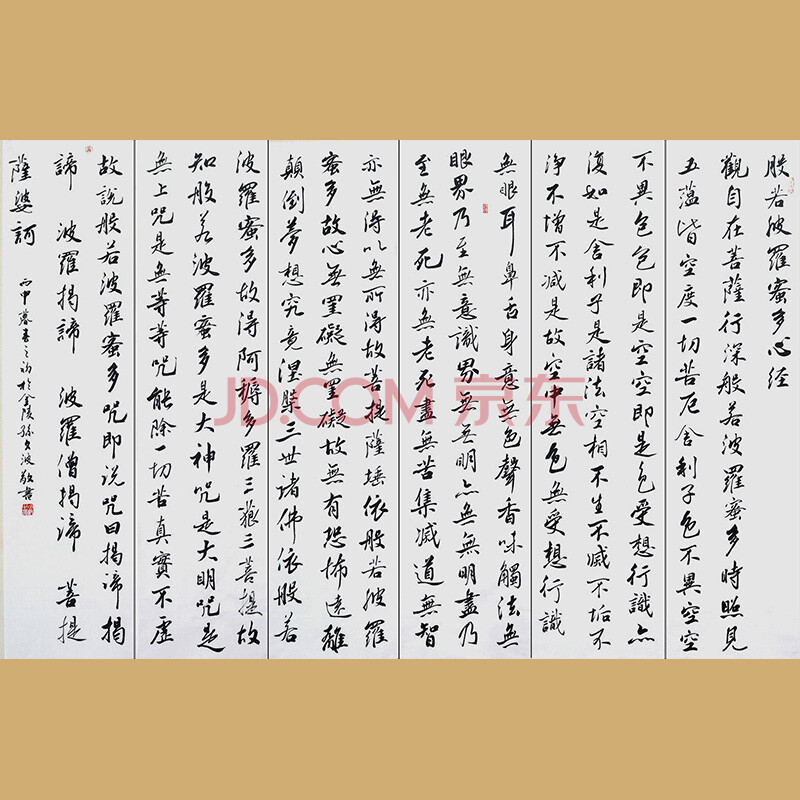 般若波羅蜜多心經
觀自在菩薩行深般若波羅蜜多時照見
五蕴皆空度一切苦厄舍利子色不異空空
不異色色即是空空即是色受想行識亦
復如是舍利子是諸法空相不生不滅不垢不
淨不增不減是故空中無色無受想行識
無眼耳鼻舌身意無色聲香味觸法無
眼界乃至無意識界無無明亦無無明盡乃
至無老死亦無老死盡無苦集滅道無智
亦無得以無所得故菩提薩埵依般若波羅
蜜多故心無罣礙無罣礙故無有恐怖遠離
顛倒夢想究竟涅槃三世諸佛依般若
波羅蜜多故得阿耨多羅三藐三菩提故
知般若波羅蜜多是大神咒是大明咒是
無上咒是無等等咒能除一切苦真實不虛
故說般若波羅蜜多咒即说咒曰揭諦揭
諦 波羅揭諦 波羅僧揭諦 菩提
薩婆訶
丙申暮春之初於金陵孫久波敬書
JD.COM 京东